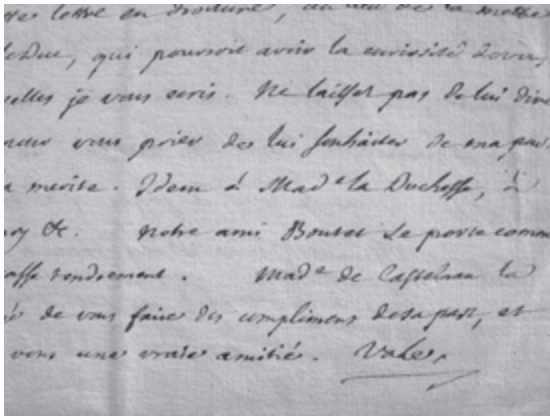 lettre en droiture, au lieu de la mettre
le Duc, qui pourroit avoir la curiosité
elles je vous ecris. Ne laissez pas de lui dire
vous prier de lui souhaiter de ma part
merite. Idem à Made la Duchesse, à
&c. Notre ami Boutet se porte comm
tendrement. Made de Castelnau
de vous faire des complimens de sa part, et
vous une vraie amitié. Valler